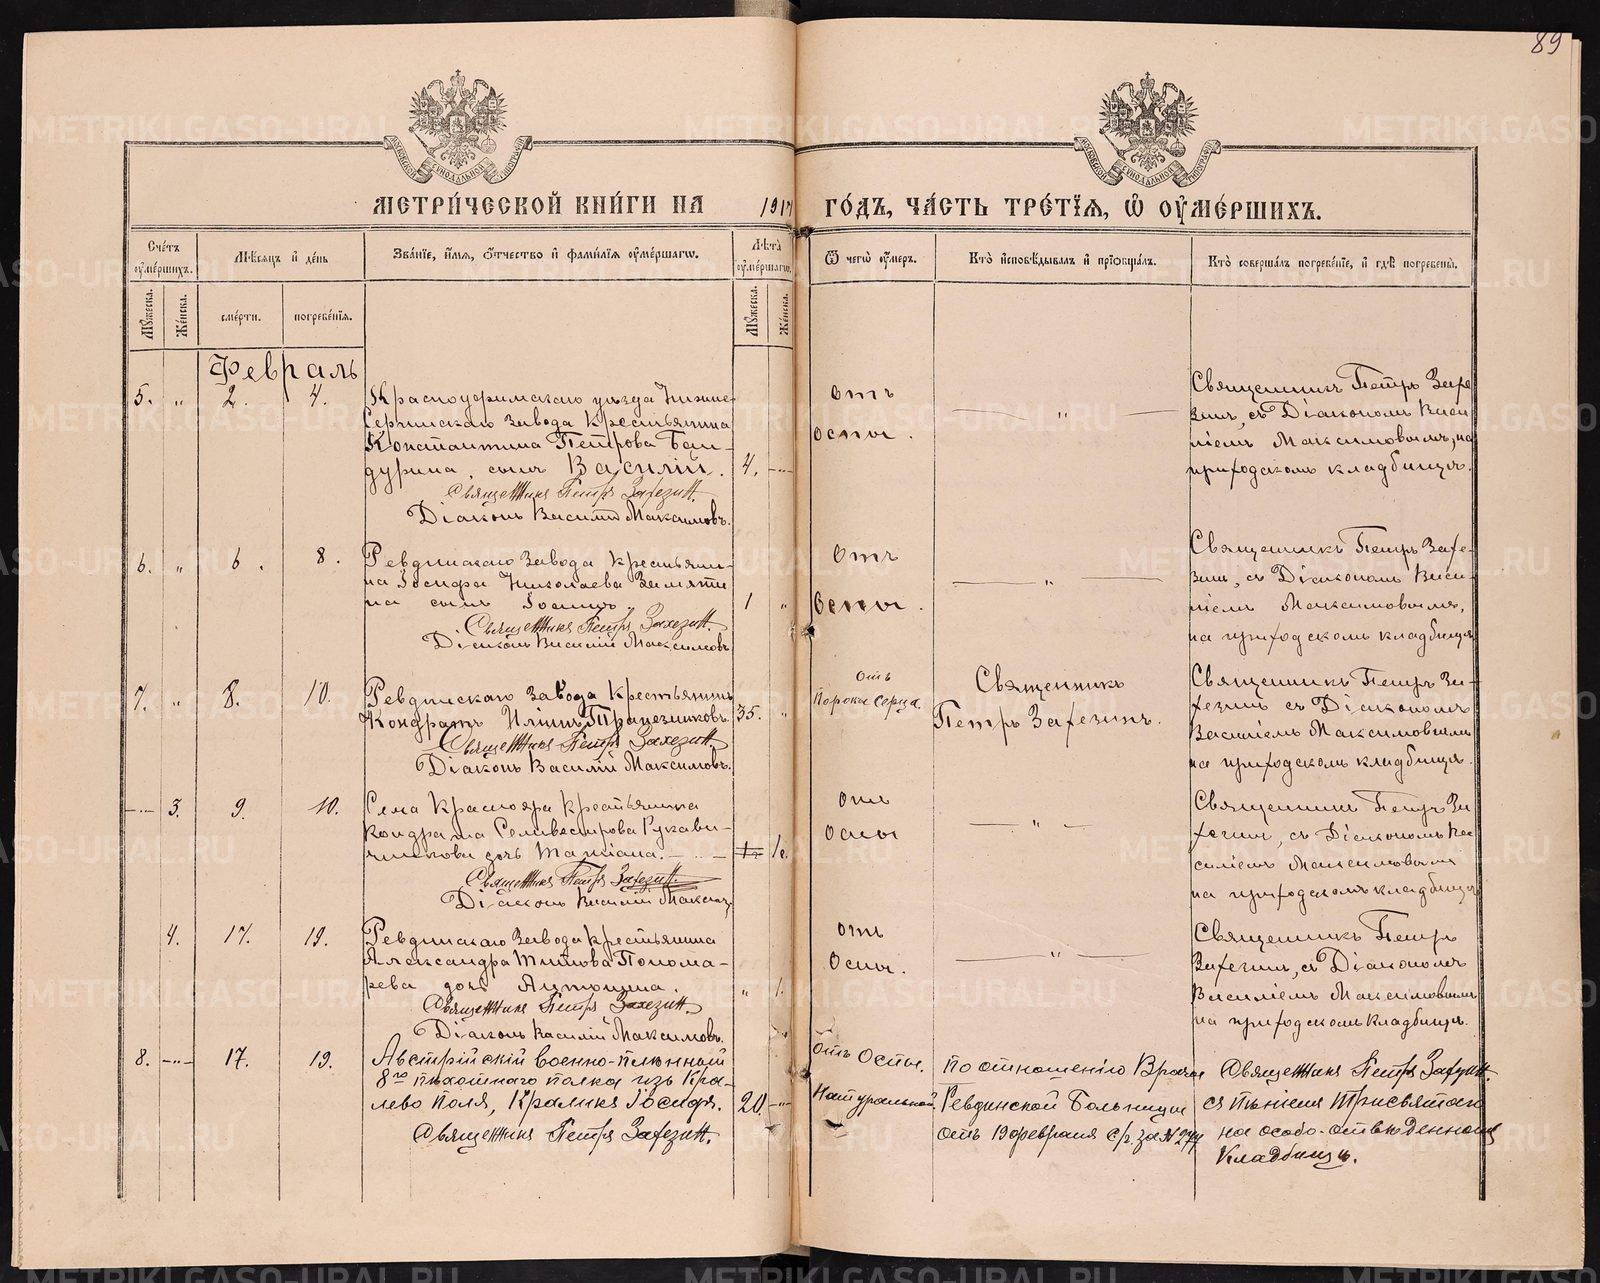 89
МЕТРИ́ЧЕСКОЙ КНИ́ГИ НА 1917 ГО́ДЪ, ЧА́СТЬ ТРЕ́ТІѦ, Ѡ҆ ОУ҆МЕ́РШИХЪ.
Счétъ оу҆ме́ршихъ.
Мѣ́сяцъ и҆ де́нь
Зва́нїе, и҆́мѧ, ѻ҆́тчество и҆ фами́лїѧ оу҆ме́ршагѡ.
Лѣ́та оу҆ме́ршагѡ.
Ѿ чегѡ̀ оу҆́меръ.
Кто̀ и҆сповѣ́дывалъ и҆ прїѻбща́лъ.
Кто̀ соверша́лъ погребе́нїе, и҆ гдѣ̀ погребены̀.
Мꙋ́жеска.
Же́нска.
сме́рти.
погребе́нїѧ.
Мꙋ́жеска.
Же́нска.
Февраль
5. „ 2. 4.
Красноуфимскаго уѣзда Нижне-
Сергинскаго Завода Крестьянина
Константина Петрова Бан-
дурина, сынъ Василій. 4.
Священникъ Петръ
Діаконъ Василій Максимовъ.
отъ
оспы.
„
Священникъ Петръ
съ Діакономъ Васи-
ліемъ Максимовымъ, на
приходскомъ кладбищѣ.
6. „ 6. 8.
Ревдинскаго Завода крестьяни-
на Іосифа Николаева Замяти-
на сынъ Іоаннъ. 1 „
Священникъ Петръ
Діаконъ Василій Максимовъ
Отъ
Оспы.
„
Священникъ Петръ
съ Діакономъ Васи-
ліемъ Максимовымъ,
на приходскомъ кладбищѣ
7. „ 8. 10.
Ревдинскаго Завода Крестьянинъ
Кондратъ Иліинъ Трапезниковъ. 35. „
Священникъ Петръ
Діаконъ Василій Максимовъ.
отъ
Порока Серца.
Священникъ
Петръ
Священникъ Петръ
съ Діакономъ
Василіемъ Максимовымъ
на приходскомъ кладбищѣ.
3. 9. 10.
Села Краснояра крестьянина
Кондрата Селивестрова Рукави-
шникова дочь Татіана.
Священникъ Петръ
Діаконъ Василій
Отъ
Оспы
„
Священникъ Петръ
съ Діакономъ Ва-
силіемъ Максимовымъ
на приходскомъ кладбищѣ
4. 17. 19.
Ревдинскаго Завода крестьянина
Александра Титова Понома-
рева дочь Антонина. „ 1.
Священникъ Петръ
Діаконъ Василій Максимовъ.
Отъ
Оспы.
„
Священникъ Петръ
съ Діакономъ
Василіемъ Максимовымъ
на приходскомъ кладбищѣ.
8. 17. 19.
Австрійскій военно-плѣнный
8го пѣхотнаго полка изъ Кра-
лево поля, Кралика Іосифъ. 20.
Священникъ Петръ
Отъ Оспы.
Натуральной.
По отношенію Врача
Ревдинской Больницы
отъ 19 февраля с/г. за №
Священникъ Петръ
съ пѣніемъ Трисвятаго
на особо-отведенномъ
Кладбищѣ.